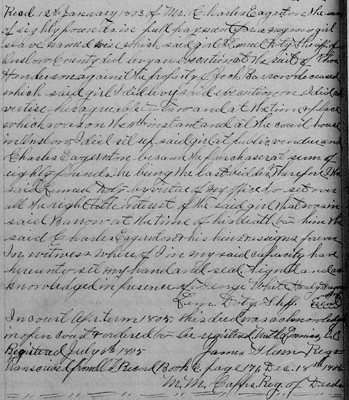 Recd 12th January 1803 of Mr. Charles Eagerton the sum
of eighty pounds in full payment for a negro girl
slave named which said girl Lemuel Doty Shiff of
Onslow County did by an execution at the suit of
Henderson against the property of Jack Barrow deceased
which said girl I did levy said execution on & did ad
vertise her agreeable to law and at the time & place
which was on the 11th instant and at the court house
in Onslow I did sell up said girl at public vendue and
Charles Eagerton became the purchaser at sum of
eighty pounds, he being the last bidder therefore I the
said Lemuel Doty by virtue of my office do set over
all the right title interest of the said girl that was in
said Barrow at the time of his death to him the
said Charles Eagerton & his heirs & assigns forever
In witness whereof I in my said capacity have
hereunto set my hand and seal signed and ac
knowledged in presence of George
Doty Shff Seal
In court Apr term 1805, this deed was acknowledg
in open court & ordered to be registered
Registered July 9th 1815 James Glenn Regr
Transcribed from Old Record Book page 176 Dec. 18th
M. M. Capps Reg. of Deeds